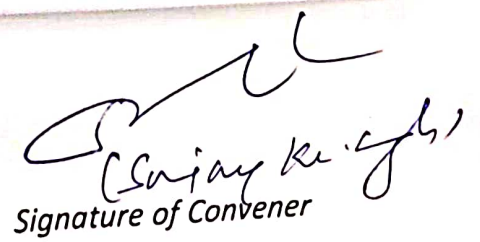 (Sanjay Kr. Singh)
Signature of Convener